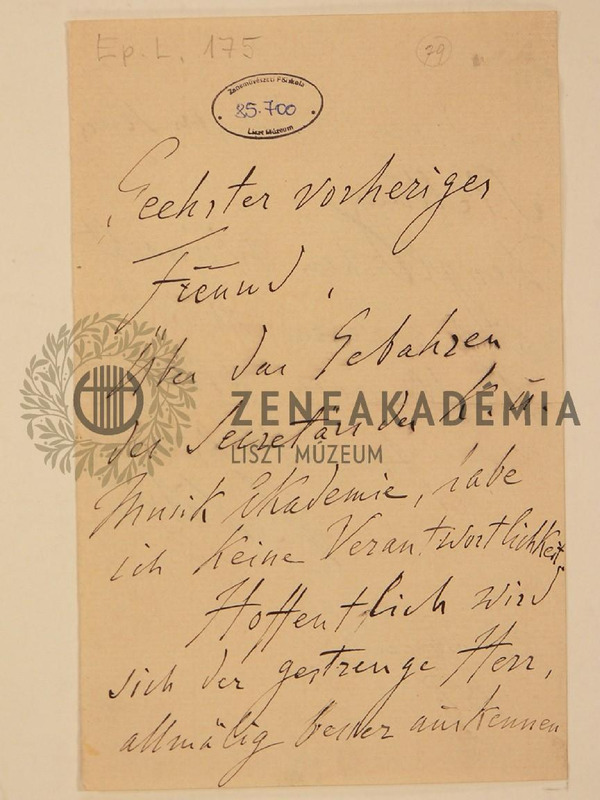 Ep. L. 175
79
Zeneművészeti Főiskola
85.700
Liszt Múzeum
Geehrter vorheriger
Freund,
Über das Gebahren
des Secretärs der K. u.
ZENEAKADÉMIA
LISZT MÚZEUM
Musik Akademie, habe
ich keine Verantwortlichkeit.
Hoffentlich wird
sich der gestrenge Herr,
allmälig besser auskennen